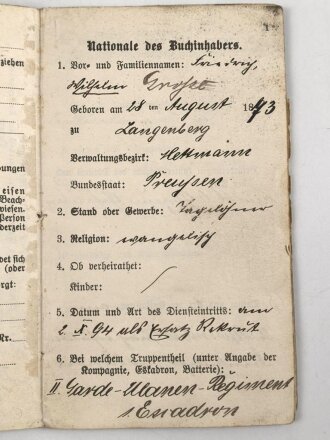 ziehen
ungen
eisen
Beach-
wiesen.
Person
derzeit
det sich
(oder
rgt:
Nr.
1
Nationale des Buchinhabers.
1. Vor- und Familiennamen: Friedrich,
Wilhelm Groß
Geboren am 28 ten August 1873
zu Langenberg
Verwaltungsbezirk: Mettmann
Bundesstaat: Preussen
2. Stand oder Gewerbe: Tagelöhner
3. Religion: evangelisch
4. Ob verheirathet: /
Kinder:
5. Datum und Art des Diensteintritts: am
2. X. 94 als Ersatz Rekrut
6. Bei welchem Truppentheil (unter Angabe der
Kompagnie, Eskadron, Batterie):
II. Garde-Ulanen-Regiment
Escadron